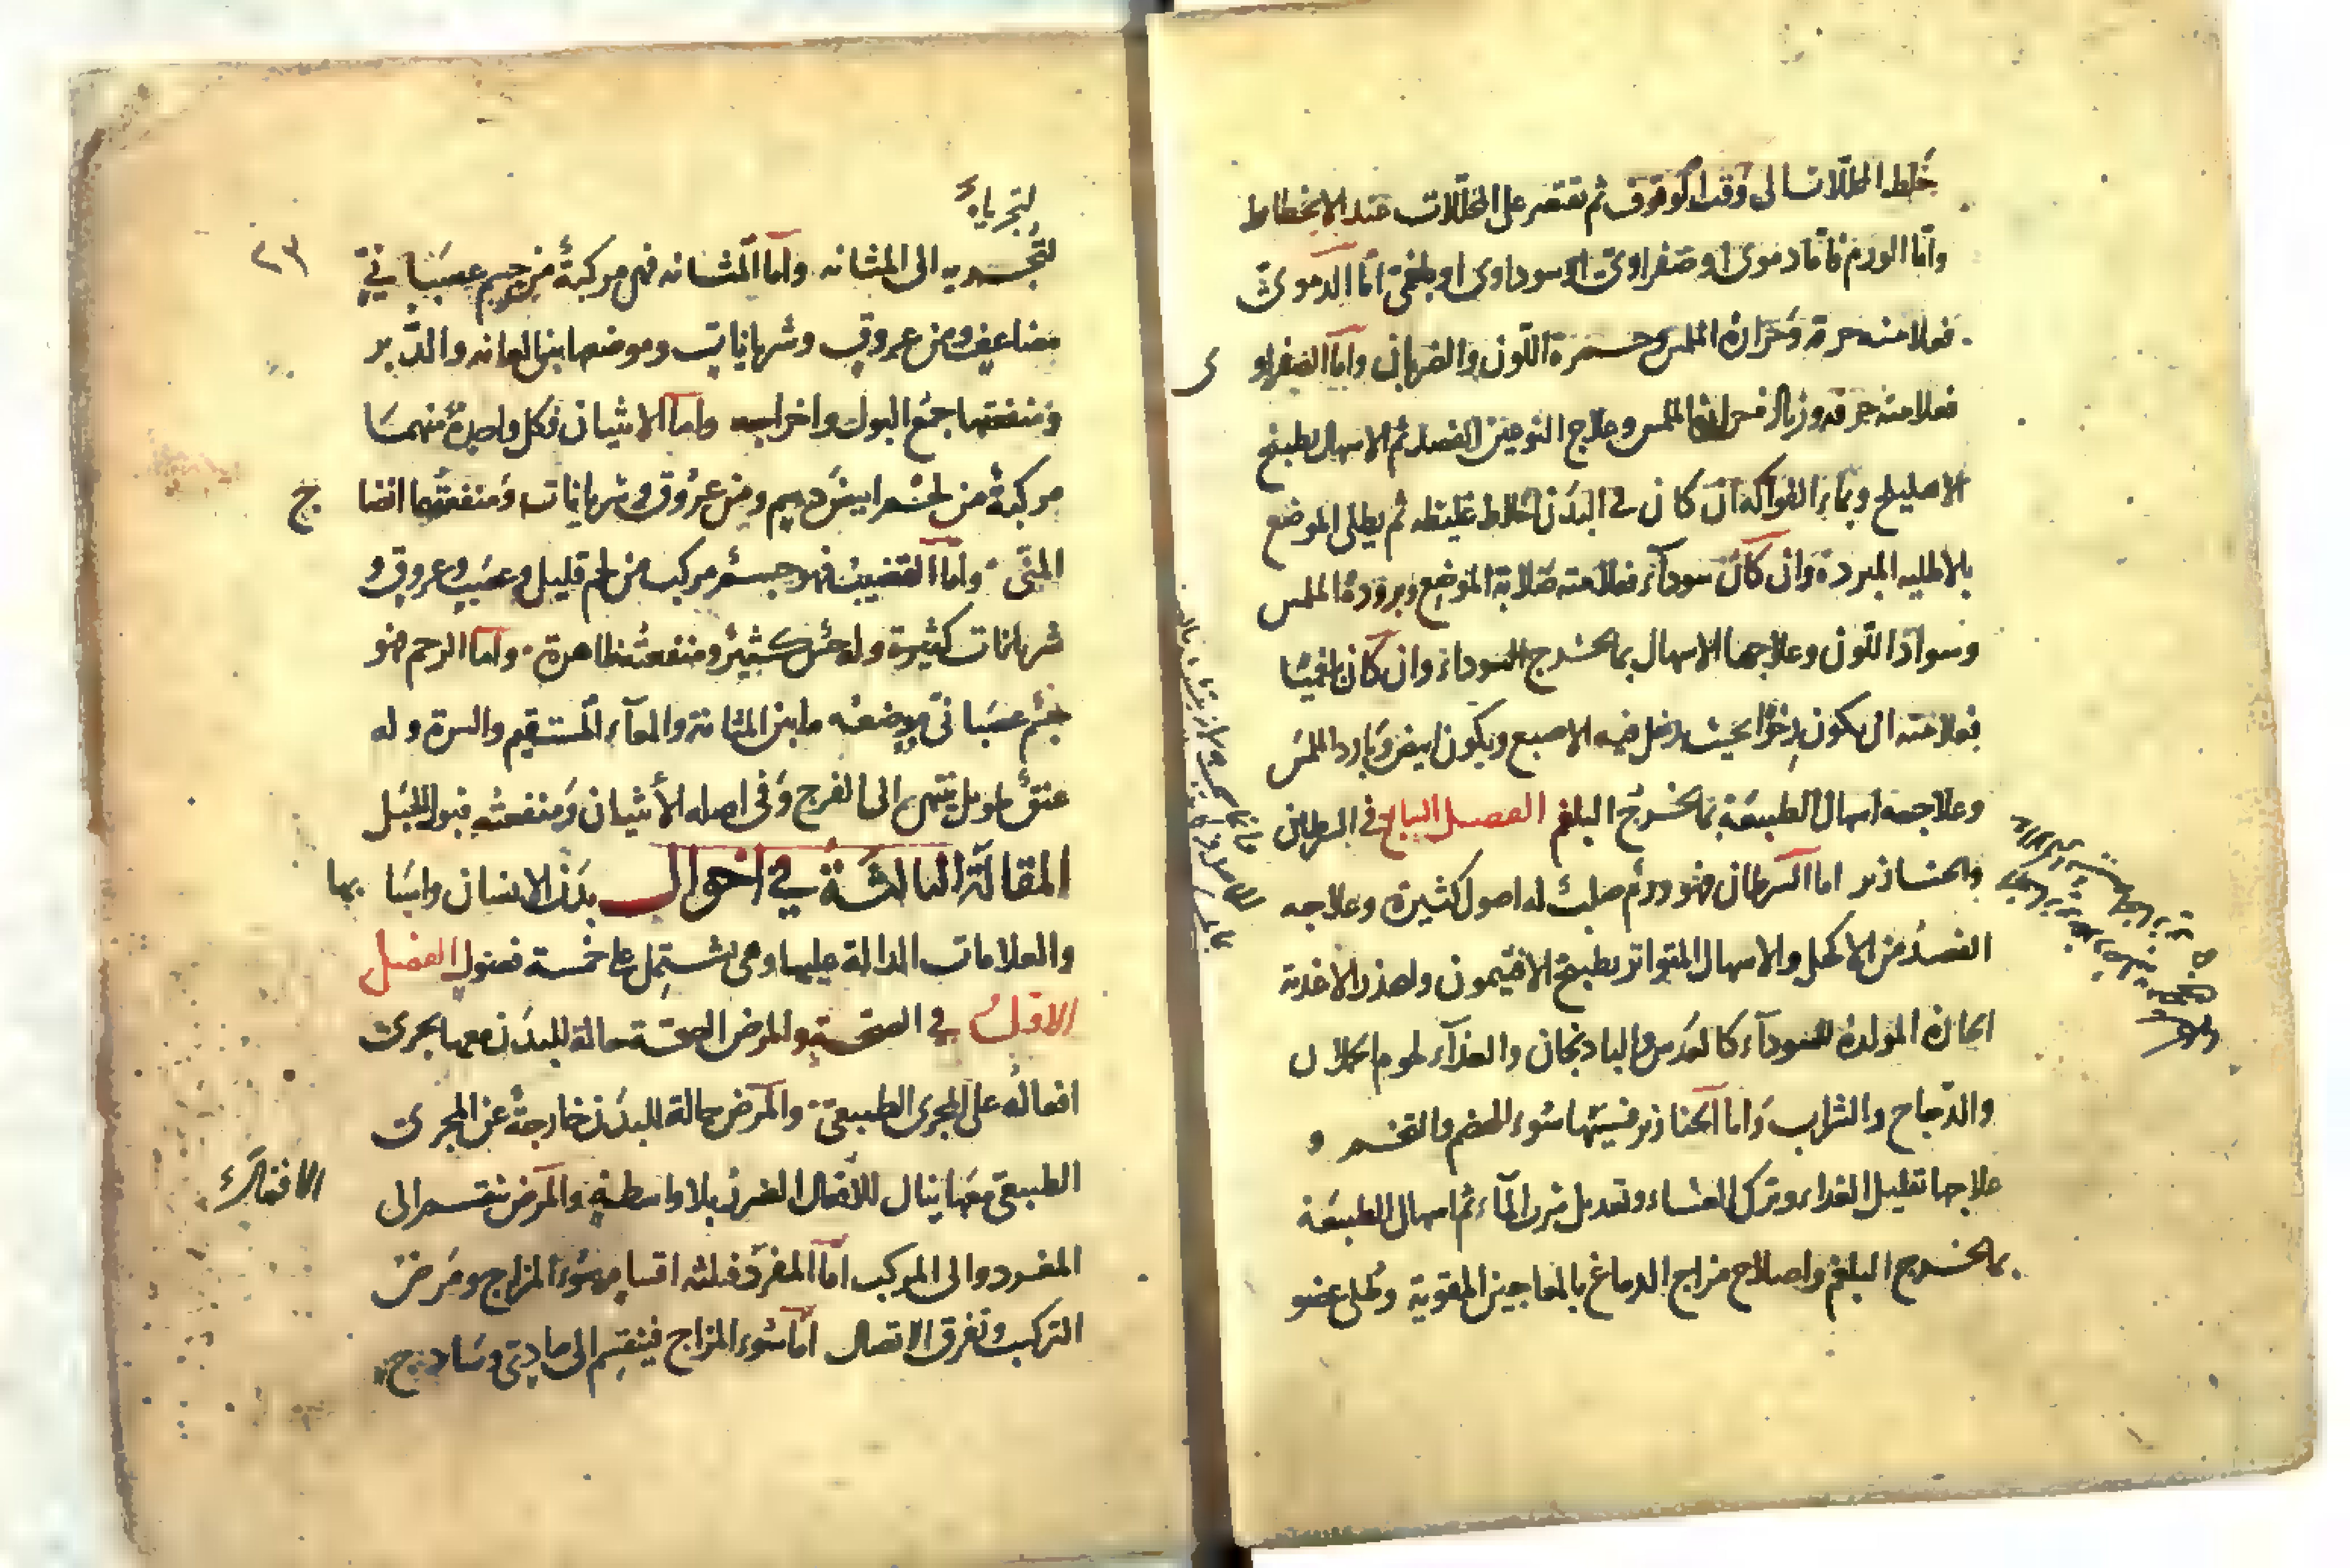 يخلط المحللات الى وقت الوقوف ثم تقتصر على المحللات عند الانحطاط
واما الورم فاما دموى او صفراوى او سوداوى او بلغمى اما الدموى
فعلامته حمرة وحرارة الملمس وحمرة اللون والضربان واما الصفراو
ى
فعلامته حرقه وزيادة حرارة الملمس وعلاج النوعين الفصد ثم الاسهال بطبيخ
الاهليلج وبماء الفواكه ان كان فى البدن اخلاط غليظه ثم يطلى الموضع
بالاطليه المبردة وان كان سوداء فعلامته صلابة الموضع وبرودة الملمس
وسواد اللون وعلاجها الاسهال بما يخرج السوداء وان كان بلغميا
فعلامته ان يكون رخوا بحيث يدخل فيه الاصبع ويكون ابيض وبارد الملمس
وعلاجه اسهال الطبيعة بما يخرج البلغم الفصل السابع فى السرطان
والخنازير اما السرطان فهو ورم صلب له اصول كثيرة وعلاجه
الفصد من الاكحل والاسهال المتواتر بطبيخ الافتيمون ولحذر الاغذية
الحارة المولدة للسوداء كالعدس والبادنجان والغذاء لحوم الحملان
والدجاج والشراب واما الخنازير فسببها سوء الهضم والتخم و
علاجها تقليل الغداء وترك العشاء وتعديل شرب الماء ثم اسهال الطبيعة
بما يخرج البلغم واصلاح مزاج الدماغ بالمعاجين المقوية وكل عضو
لتجريا
٢٣
لتجريه الى المثانه واما المثانه فهى مركبة من جسم عصبانى
مضاعف ومن عروق وشريانات وموضعها بين العانه والدبر
ومنفعتها جمع البول واخراجه واما الانثيان فكل واحدة منهما
مركبة من لحم ابيض دسم ومن عروق وشريانات ومنفعتهما انضا
ج
المنى واما القضيب فهو جسم مركب من لحم قليل وعصب وعروق و
شريانات كثيرة وله حس كثير ومنفعته ظاهرة واما الرحم فهو
جسم عصبانى موضعه ما بين المثانة والمعاء المستقيم والسرة وله
عنق طويل ينتهى الى الفرج وفى اصله الأنثيان ومنفعته قبول الحبل
المقالة الثالثة في احوال بدن الانسان واسبا بها
والعلامات الدالة عليها وهى تشتمل على خمسة فصول الفصل
الاول في الصحة والمرض الصحة حالة للبدن معها يجرى
افعاله على المجرى الطبيعى والمرض حالة للبدن خارجة عن المجرى
الطبيعى معها ينال للافعال الضرر بلا واسطة والمرض ينقسم الى
الافعال
المفرد والى المركب اما المفرد فثلثه اقسام سوء المزاج ومرض
التركيب وتفرق الاتصال اما سوء المزاج فينقسم الى مادى وساذج